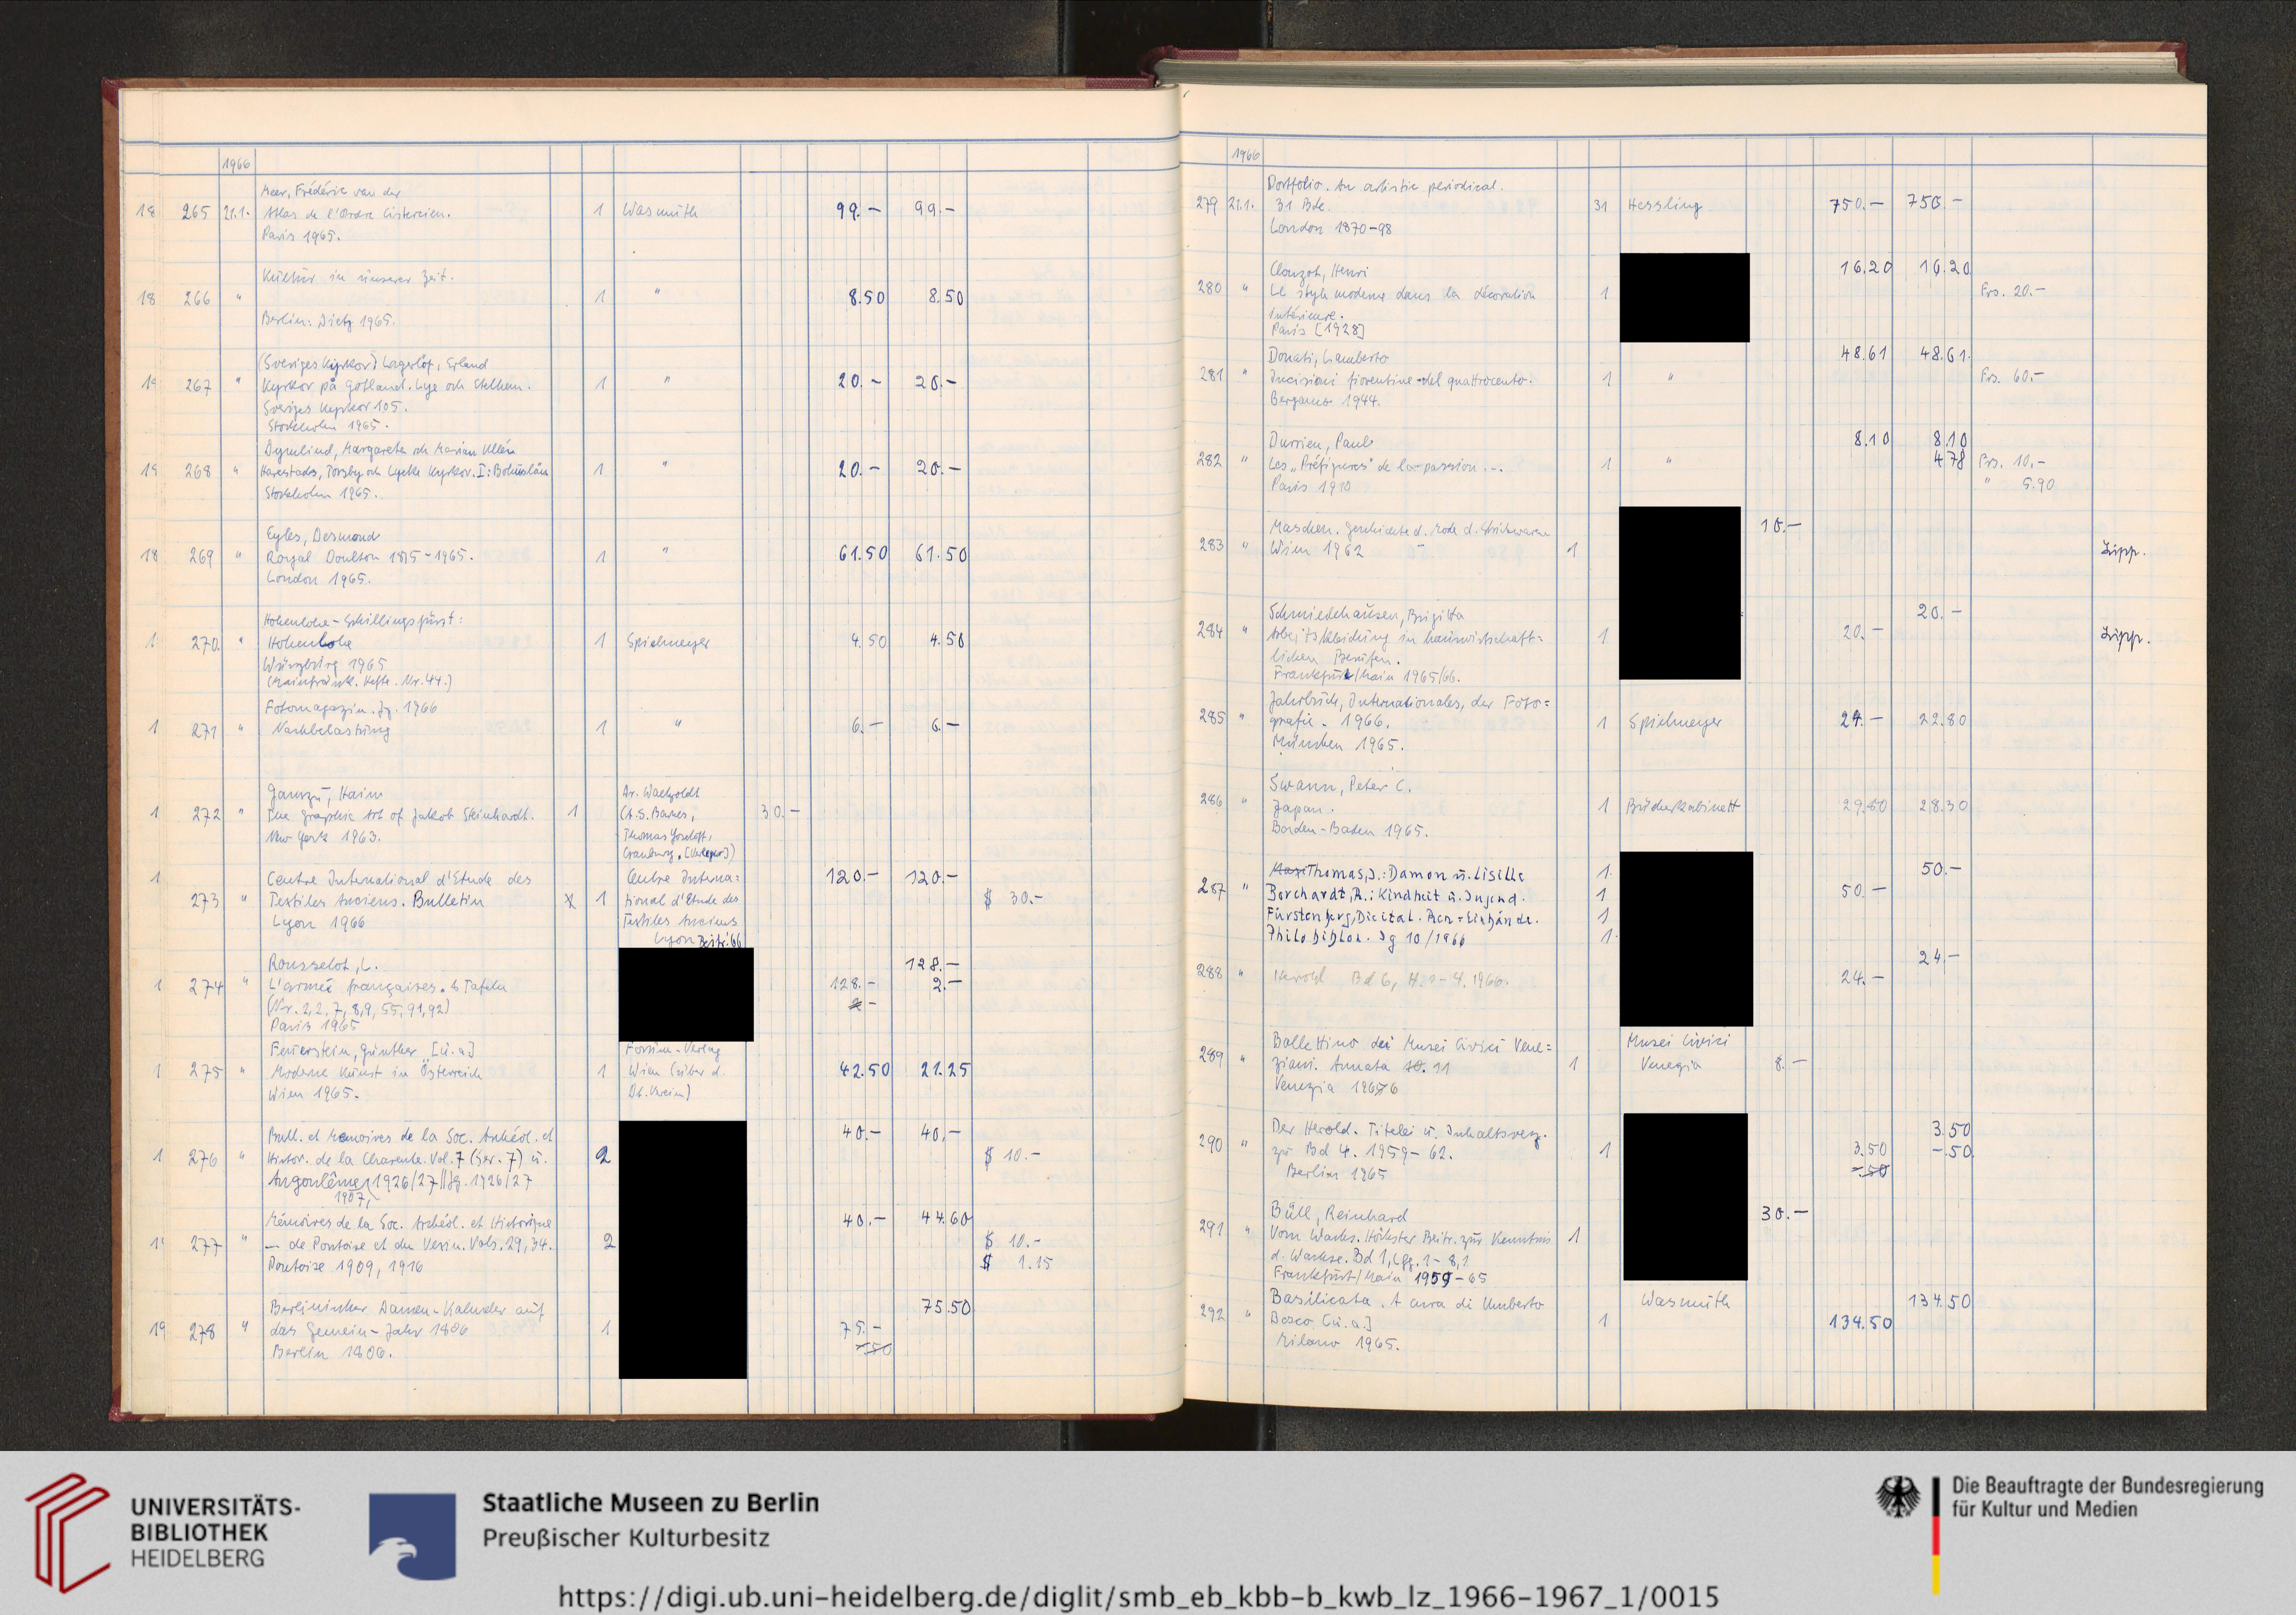 1966
Meer, Frédéric van der
18 265 21.1. Atlas de l'Ordre Cistercien. 1 Wasmuth 99.- 99.-
Paris 1965.
Kultur in unserer Zeit.
18 266 " 1 " 8.50 8.50
Berlin: Dietz 1965.
(Sveriges Kyrkor) Lagerlöf, Erland
19 267 " Kyrkor på Gotland. Lye och Etelhem. 1 " 20.- 20.-
Sveriges Kyrkor 105.
Stockholm 1965.
Dymlind, Margareta och Marian Ullén
19 268 " Harestads, Torsby och Lycke Kyrkor. I: Bohuslän 1 " 20.- 20.-
Stockholm 1965.
Eyles, Desmond
18 269 " Royal Doulton 1815-1965. 1 " 61.50 61.50
London 1965.
Hohenlohe-Schillingsfürst:
1 270 " Hohenlohe 1 Spielmeyer 4.50 4.50
Würzburg 1965
(Mainfränk. Hefte. Nr. 44.)
Fotomagazin. Jg. 1966
1 271 " Nachbelastung 1 " 6.- 6.-
Gamzu, Haim
1 272 " The graphic Art of Jakob Steinhardt. 1 30.-
New York 1963.
Dr. Waetzoldt
(A.S. Barnes,
Thomas Yoseloff,
Cranbury. [Verleger])
1 273 " Centre International d'Etude des 120.- 120.-
Textiles Anciens. Bulletin 1 $ 30.-
Lyon 1966
Centre Interna=
tional d'Etude des
Textiles Anciens
Lyon Beitr. 66
Rousselot, L. 128.-
1 274 " L'armée française. 6 Tafeln 128.- 2.-
(Nr. 2,2, 7, 8,9, 55, 91,92) 2.-
Paris 1965
Feuerstein, Günther [u.a.] Forum-Verlag
1 275 " Moderne Kunst in Österreich 1 Wien (über d. 42.50 21.25
Wien 1965. Dt. Verein)
Bull. et Memoires de la Soc. Archéol. et 40.- 40.-
1 276 " Histor. de la Charente. Vol. 7 (Ser. 7) u. 2 $ 10.-
Angoulême 1926/27 Jg. 1926/27
1907,
Mémoires de la Soc. Archéol. et Historique 40.- 44.60
277 " — de Pontoise et du Vexin. Vols. 29, 34. 2 $ 10.-
Pontoise 1909, 1916 $ 1.15
Berlinischer Damen-Kalender auf 75.50
19 278 " das Gemein-Jahr 1806 1 75.-
Berlin 1806. -.50
1966
Portfolio. An artistic periodical.
279 21.1. 31 Bde. 31 Hessling 750.- 750.-
London 1870-98
Clouzot, Henri 16.20 16.20
280 " Le style moderne dans la décoration 1 Frs. 20.-
intérieure.
Paris [1928]
Donati, Lamberto 48.61 48.61
281 " Incisioni fiorentine del quattrocento. 1 " Frs. 60.-
Bergamo 1944.
Durrieu, Paul 8.10 8.10
282 " Les „Préfigures" de la passion... 1 " 4 78 Frs. 10.-
Paris 1910 " 5.90
Maschen. Geschichte d. Mode d. Strickwaren 10.-
283 " Wien 1962 1 Lipp.
Schmiedehausen, Brigitta 20.-
284 " Arbeitskleidung in hauswirtschaft= 1 20.- Lipp.
lichen Berufen.
Frankfurt/Main 1965/66.
Jahrbuch, Internationales, der Foto=
285 " grafie. 1966. 1 Spielmeyer 24.- 22.80
München 1965.
Swann, Peter C.
286 " Japan. 1 Bücherkabinett 29.80 28.30
Baden-Baden 1965.
Thomas, J.: Damon u. Lisille 1 50.-
287 " Borchardt, R.: Kindheit u. Jugend. 1 50.-
Fürstenberg, Dicital. Ren=Einbände. 1
Philobiblon. Jg 10/1966 1
24.-
288 " Herold Bd 6, H. 1-4. 1966. 24.-
Bollettino dei Musei Civici Vene= Musei Civici
289 " ziani. Annata 10. 11 1 Venezia 8.-
Venezia 1966
Der Herold. Titelei u. Inhaltsverz. 3.50
290 " zu Bd 4. 1959-62. 1 3.50 -.50
Berlin 1965 -.50
Büll, Reinhard 30.-
291 " Vom Wachs. Höchster Beitr. zur Kenntnis 1
d. Wachse. Bd 1, Lfg. 1-8,1
Frankfurt/Main 1959-65
Basilicata. A cura di Umberto Wasmuth 134.50
292 " Bosco [u.a.] 1 134.50
Milano 1965.
UNIVERSITÄTS-
BIBLIOTHEK
HEIDELBERG
Staatliche Museen zu Berlin
Preußischer Kulturbesitz
Die Beauftragte der Bundesregierung
für Kultur und Medien
https://digi.ub.uni-heidelberg.de/diglit/smb_eb_kbb-b_kwb_lz_1966-1967_1/0015